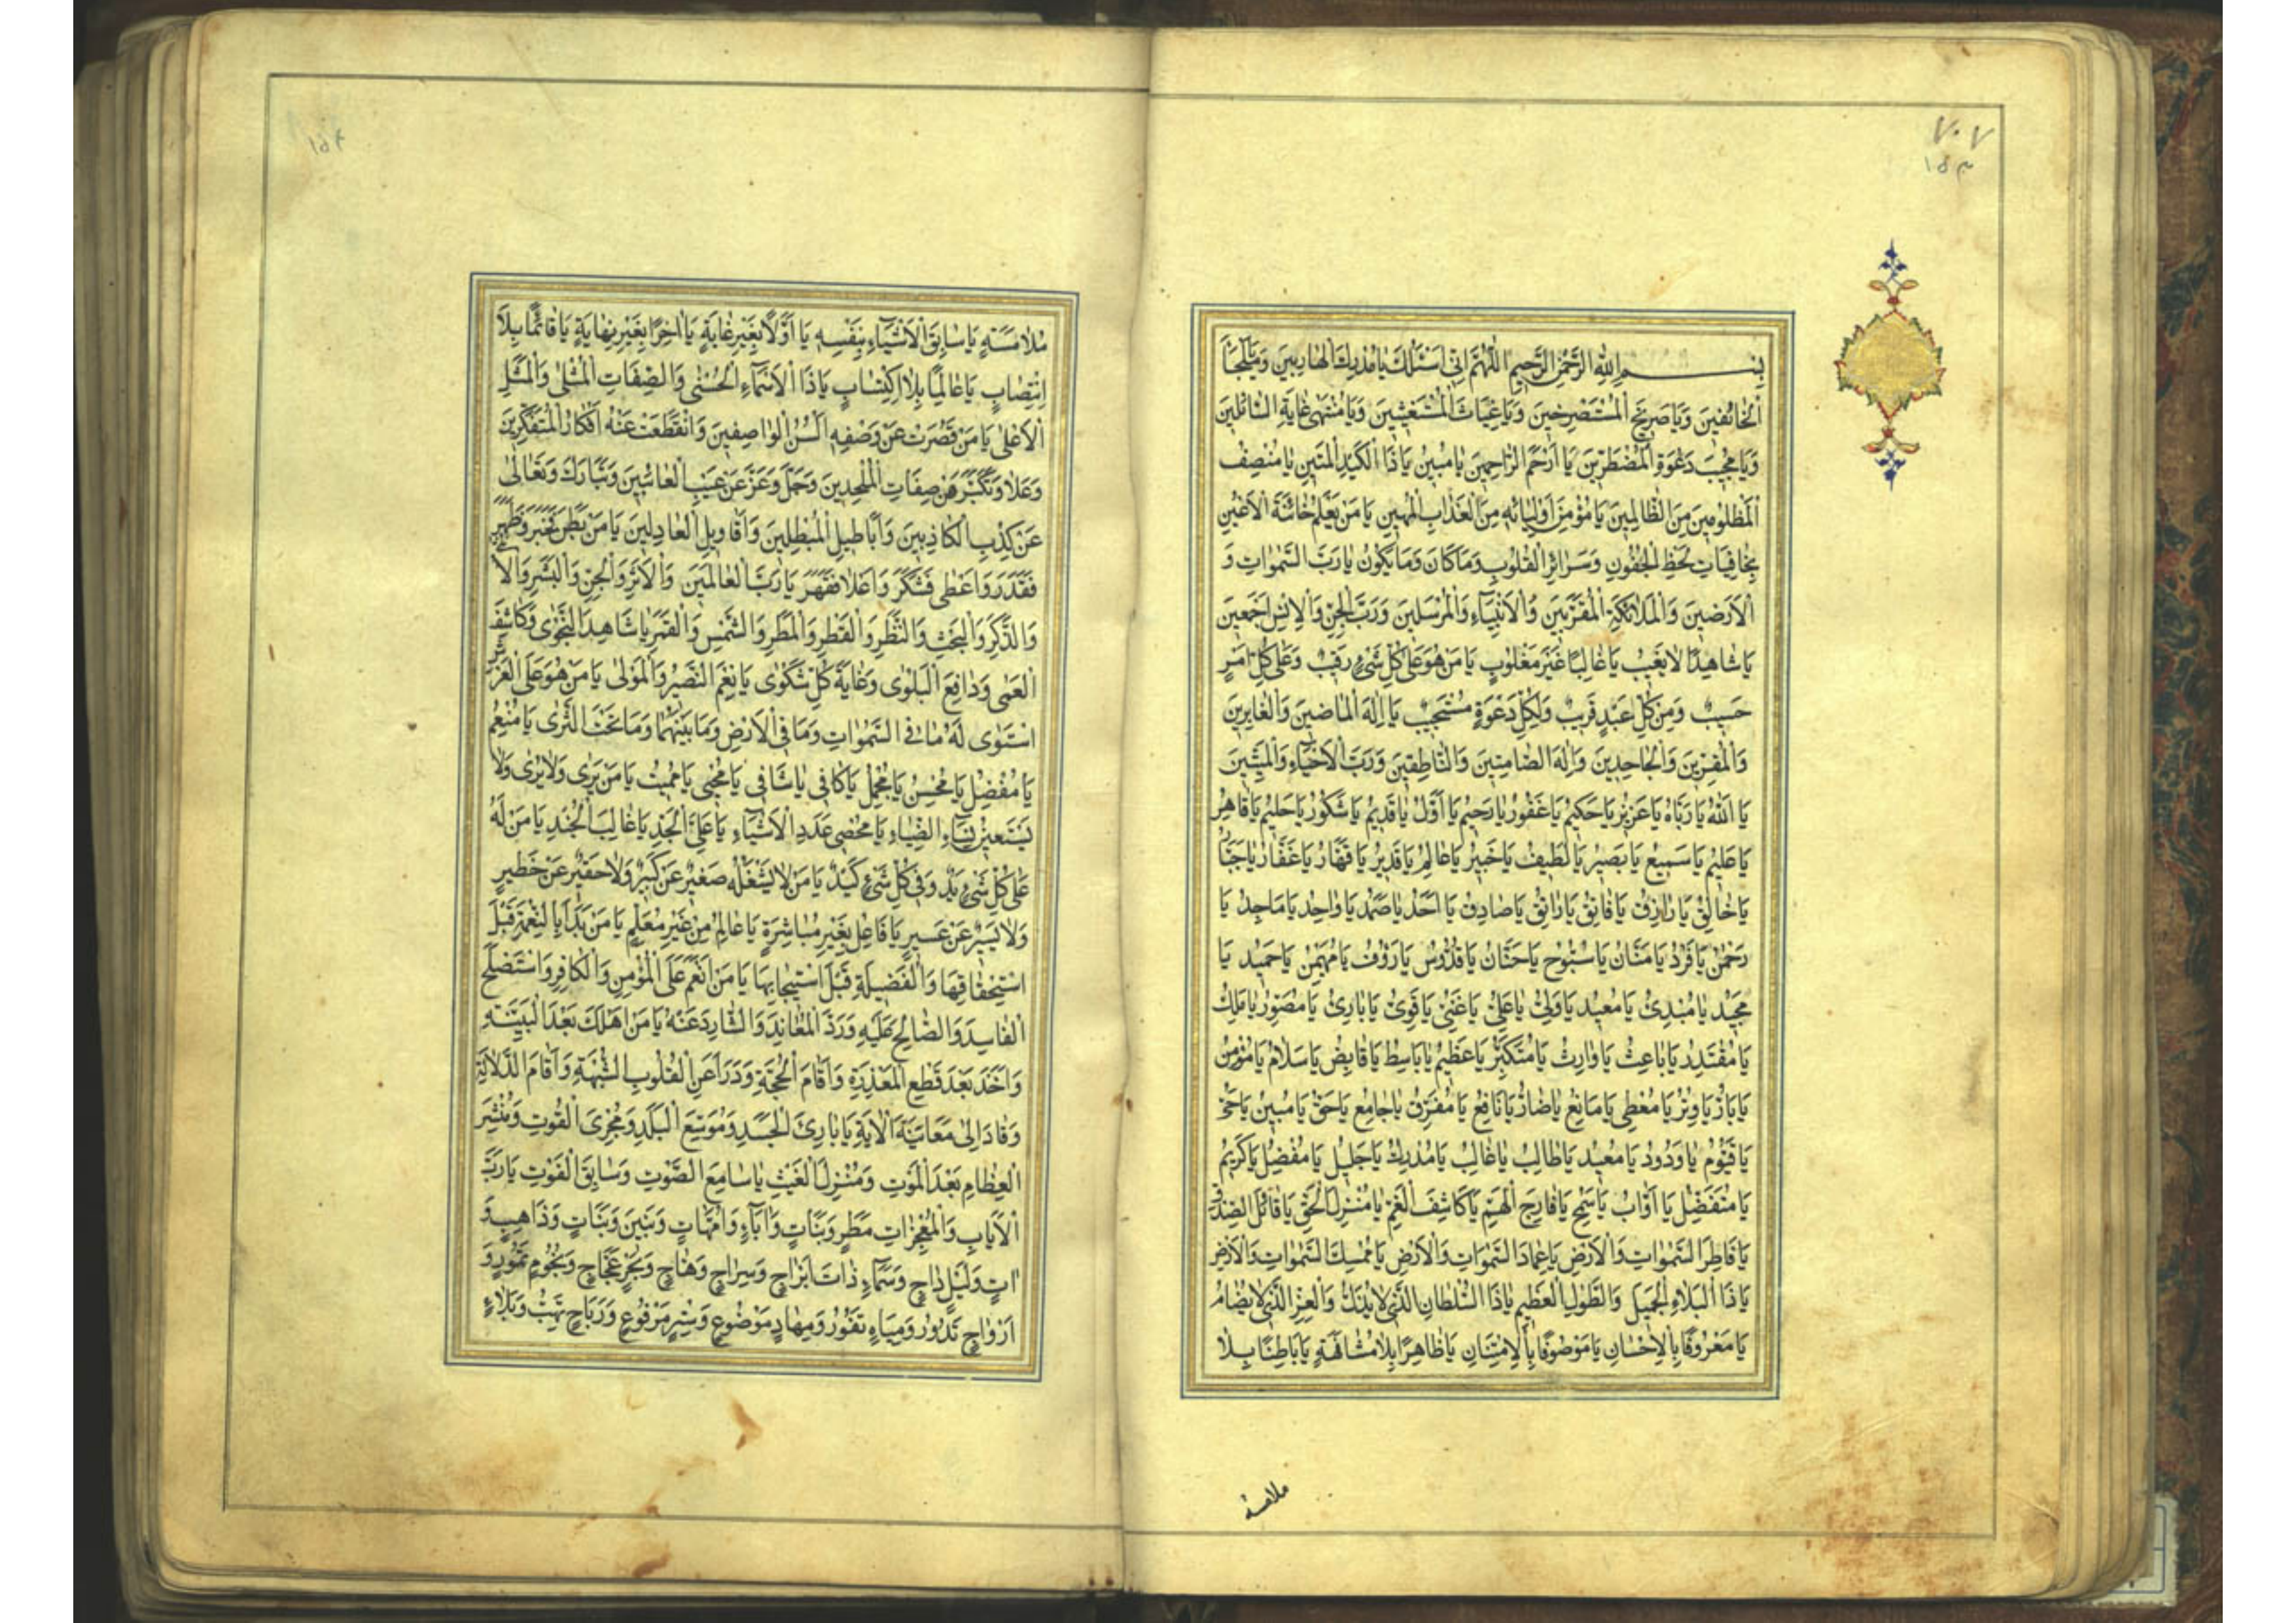 ٧٠٧
١٥٣
بسم الله الرحمن الرحیم اللهم انی اسئلک یا مدرک الهاربین ویا ملجأ
الخائفین ویا صریخ المستصرخین ویا غیاث المستغیثین ویا منتهی غایة السائلین
ویا مجیب دعوة المضطرین یا ارحم الراحمین یا مبین یا ذا الکید المتین یا منصف
المظلومین من الظالمین یا مؤمن اولیائه من العذاب المهین یا من یعلم خائنة الاعین
بخافیات لحظ الجفون وسرائر القلوب وما کان وما یکون یا رب السموات و
الارضین والملائکة المقربین والانبیاء والمرسلین ورب الجن والانس اجمعین
یا شاهدا لا یغیب یا غالبا غیر مغلوب یا من هو علی کل شیء رقیب وعلی کل امر
حسیب ومن کل عبد قریب ولکل دعوة مستجیب یا اله الماضین والغابرین
والمقرین والجاحدین واله الصامتین والناطقین ورب الاحیاء والمیتین
یا الله یا رباه یا عزیز یا حکیم یا غفور یا رحیم یا اول یا قدیم یا شکور یا حلیم یا قاهر
یا علیم یا سمیع یا بصیر یا لطیف یا خبیر یا عالم یا قدیر یا قهار یا غفار یا جبار
یا خالق یا رازق یا فاتق یا راتق یا صادق یا احد یا صمد یا واحد یا ماجد یا
رحمن یا فرد یا منان یا سبوح یا حنان یا قدوس یا رؤف یا مهیمن یا حمید یا
مجید یا مبدئ یا معید یا ولی یا علی یا غنی یا قوی یا بارئ یا مصور یا ملک
یا مقتدر یا باعث یا وارث یا متکبر یا عظیم یا باسط یا قابض یا سلام یا مؤمن
یا بار یا وتر یا معطی یا مانع یا ضار یا نافع یا مفرق یا جامع یا حق یا مبین یا حی
یا قیوم یا ودود یا معید یا طالب یا غالب یا مدرک یا جلیل یا مفضل یا کریم
یا متفضل یا اواب یا سمح یا فارج الهم یا کاشف الغم یا منزل الحق یا قائل الصدق
یا فاطر السموات والارض یا عماد السموات والارض یا ممسک السموات والارض
یا ذا البلاء الجمیل والطول العظیم یا ذا السلطان الذی لا یذل والعز الذی لا یضام
یا معروفا بالاحسان یا موصوفا بالامتنان یا ظاهرا بلا مشافهة یا باطنا بلا
ملامسة
١٥٤
ملامسة یا سابق الاشیاء بنفسه یا اولا بغیر غایة یا آخرا بغیر نهایة یا قائما بلا
انتصاب یا عالما بلا اکتساب یا ذا الاسماء الحسنی والصفات المثلی والمثل
الاعلی یا من قصرت عن وصفه السن الواصفین وانقطعت عنه افکار المتفکرین
وعلا وتکبر عن صفات الملحدین وجل وعز عن عیب العائبین وتبارک وتعالی
عن کذب الکاذبین واباطیل المبطلین واقاویل العادلین یا من بطن فخبر وظهر
فقدر واعطی فشکر وعلا فقهر یا رب العالمین والاثر والجن والبشر والا
والذکر والبحث والنظر والقطر والمطر والشمس والقمر یا شاهد النجوی وکاشف
العمی ودافع البلوی وغایة کل شکوی یا نعم النصیر والمولی یا من هو علی العرش
استوی له ما فی السموات وما فی الارض وما بینهما وما تحت الثری یا منعم
یا مفضل یا محسن یا مجمل یا کافی یا شافی یا محیی یا ممیت یا من یری ولا یری ولا
یستعین بسناء الضیاء یا محصی عدد الاشیاء یا علی الجد یا غالب الجند یا من له
علی کل شیء ید وفی کل شیء کید یا من لا یشغله صغیر عن کبیر ولا حقیر عن خطیر
ولا یسیر عن عسیر یا فاعل بغیر مباشرة یا عالم من غیر معلم یا من بدا بالنعمة قبل
استحقاقها والفضیلة قبل استیجابها یا من انعم علی المؤمن والکافر واستصلح
الفاسد والصالح علیه ورد المعاند والشارد عنه یا من اهلک بعد البینة
واخذ بعد قطع المعذرة واقام الحجة ودرأ عن القلوب الشبهة واقام الدلالة
وقاد الی معاینة الآیة یا بارئ الجسد وموسع البلد ومجری القوت ومنشر
العظام بعد الموت ومنزل الغیث یا سامع الصوت وسابق الفوت یا رب
الآیات والمعجزات مطر ونبات وآباء وامهات وبنین وبنات وذاهب و
آت ولیل داج وسماء ذات ابراج وسراج وهاج وبحر عجاج ونجوم تمور و
ارواح تدور ومیاه تفور ومهاد موضوع وستر مرفوع وریاح تهب وبلاء